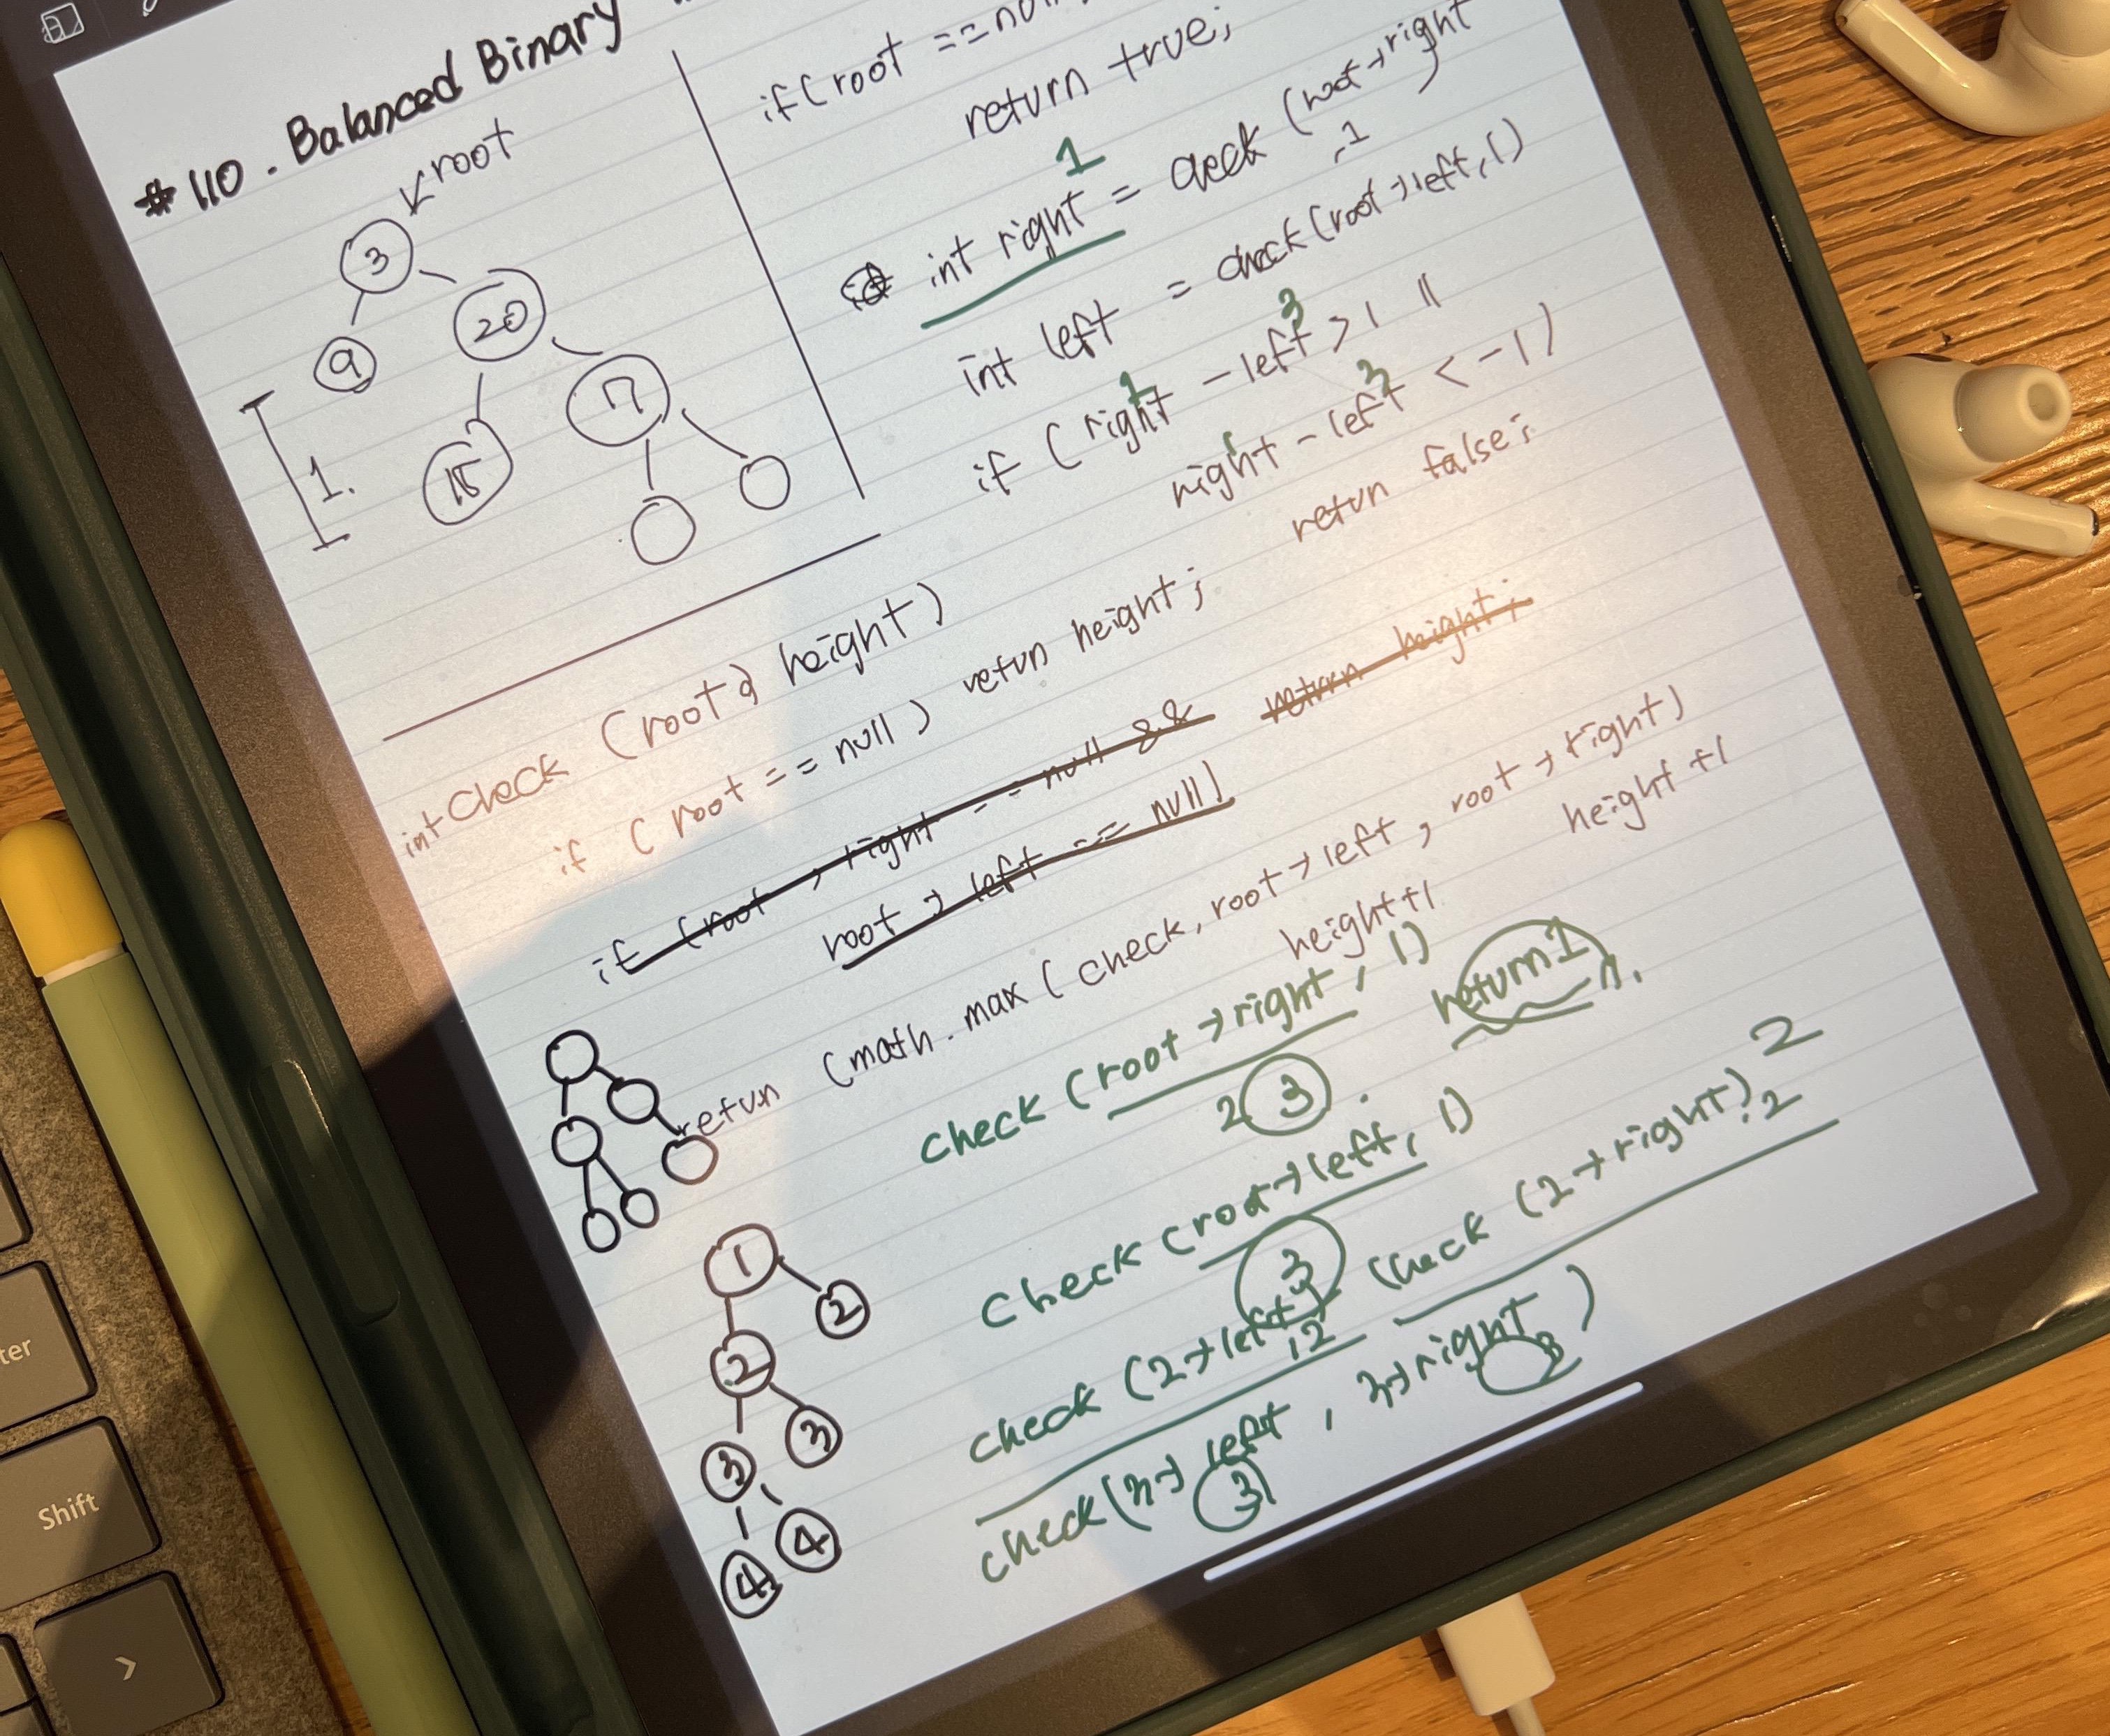 #110. Balanced Binary
root
3
9
20
15
7
1.
if (root ==
return true;
1
int right = check (root→right
,1
int left = check (root→left, 1)
3
if ( right - left > 1 ||
1
3
right - left < -1)
return false;
int check (root, height)
if ( root == null ) retun height;
if (root → right == null && return height;
root → left == null)
retun (math.max ( check, root→left, root→right)
height+1 height+1
check (root→right, 1) return 1
2 3 .
check (root→left, 1)
3
check (2→left, 2 check (2→right), 2
2
check (3→left, 3→right )
3 3
1
2
2
3
3
4
4
ter
Shift
>